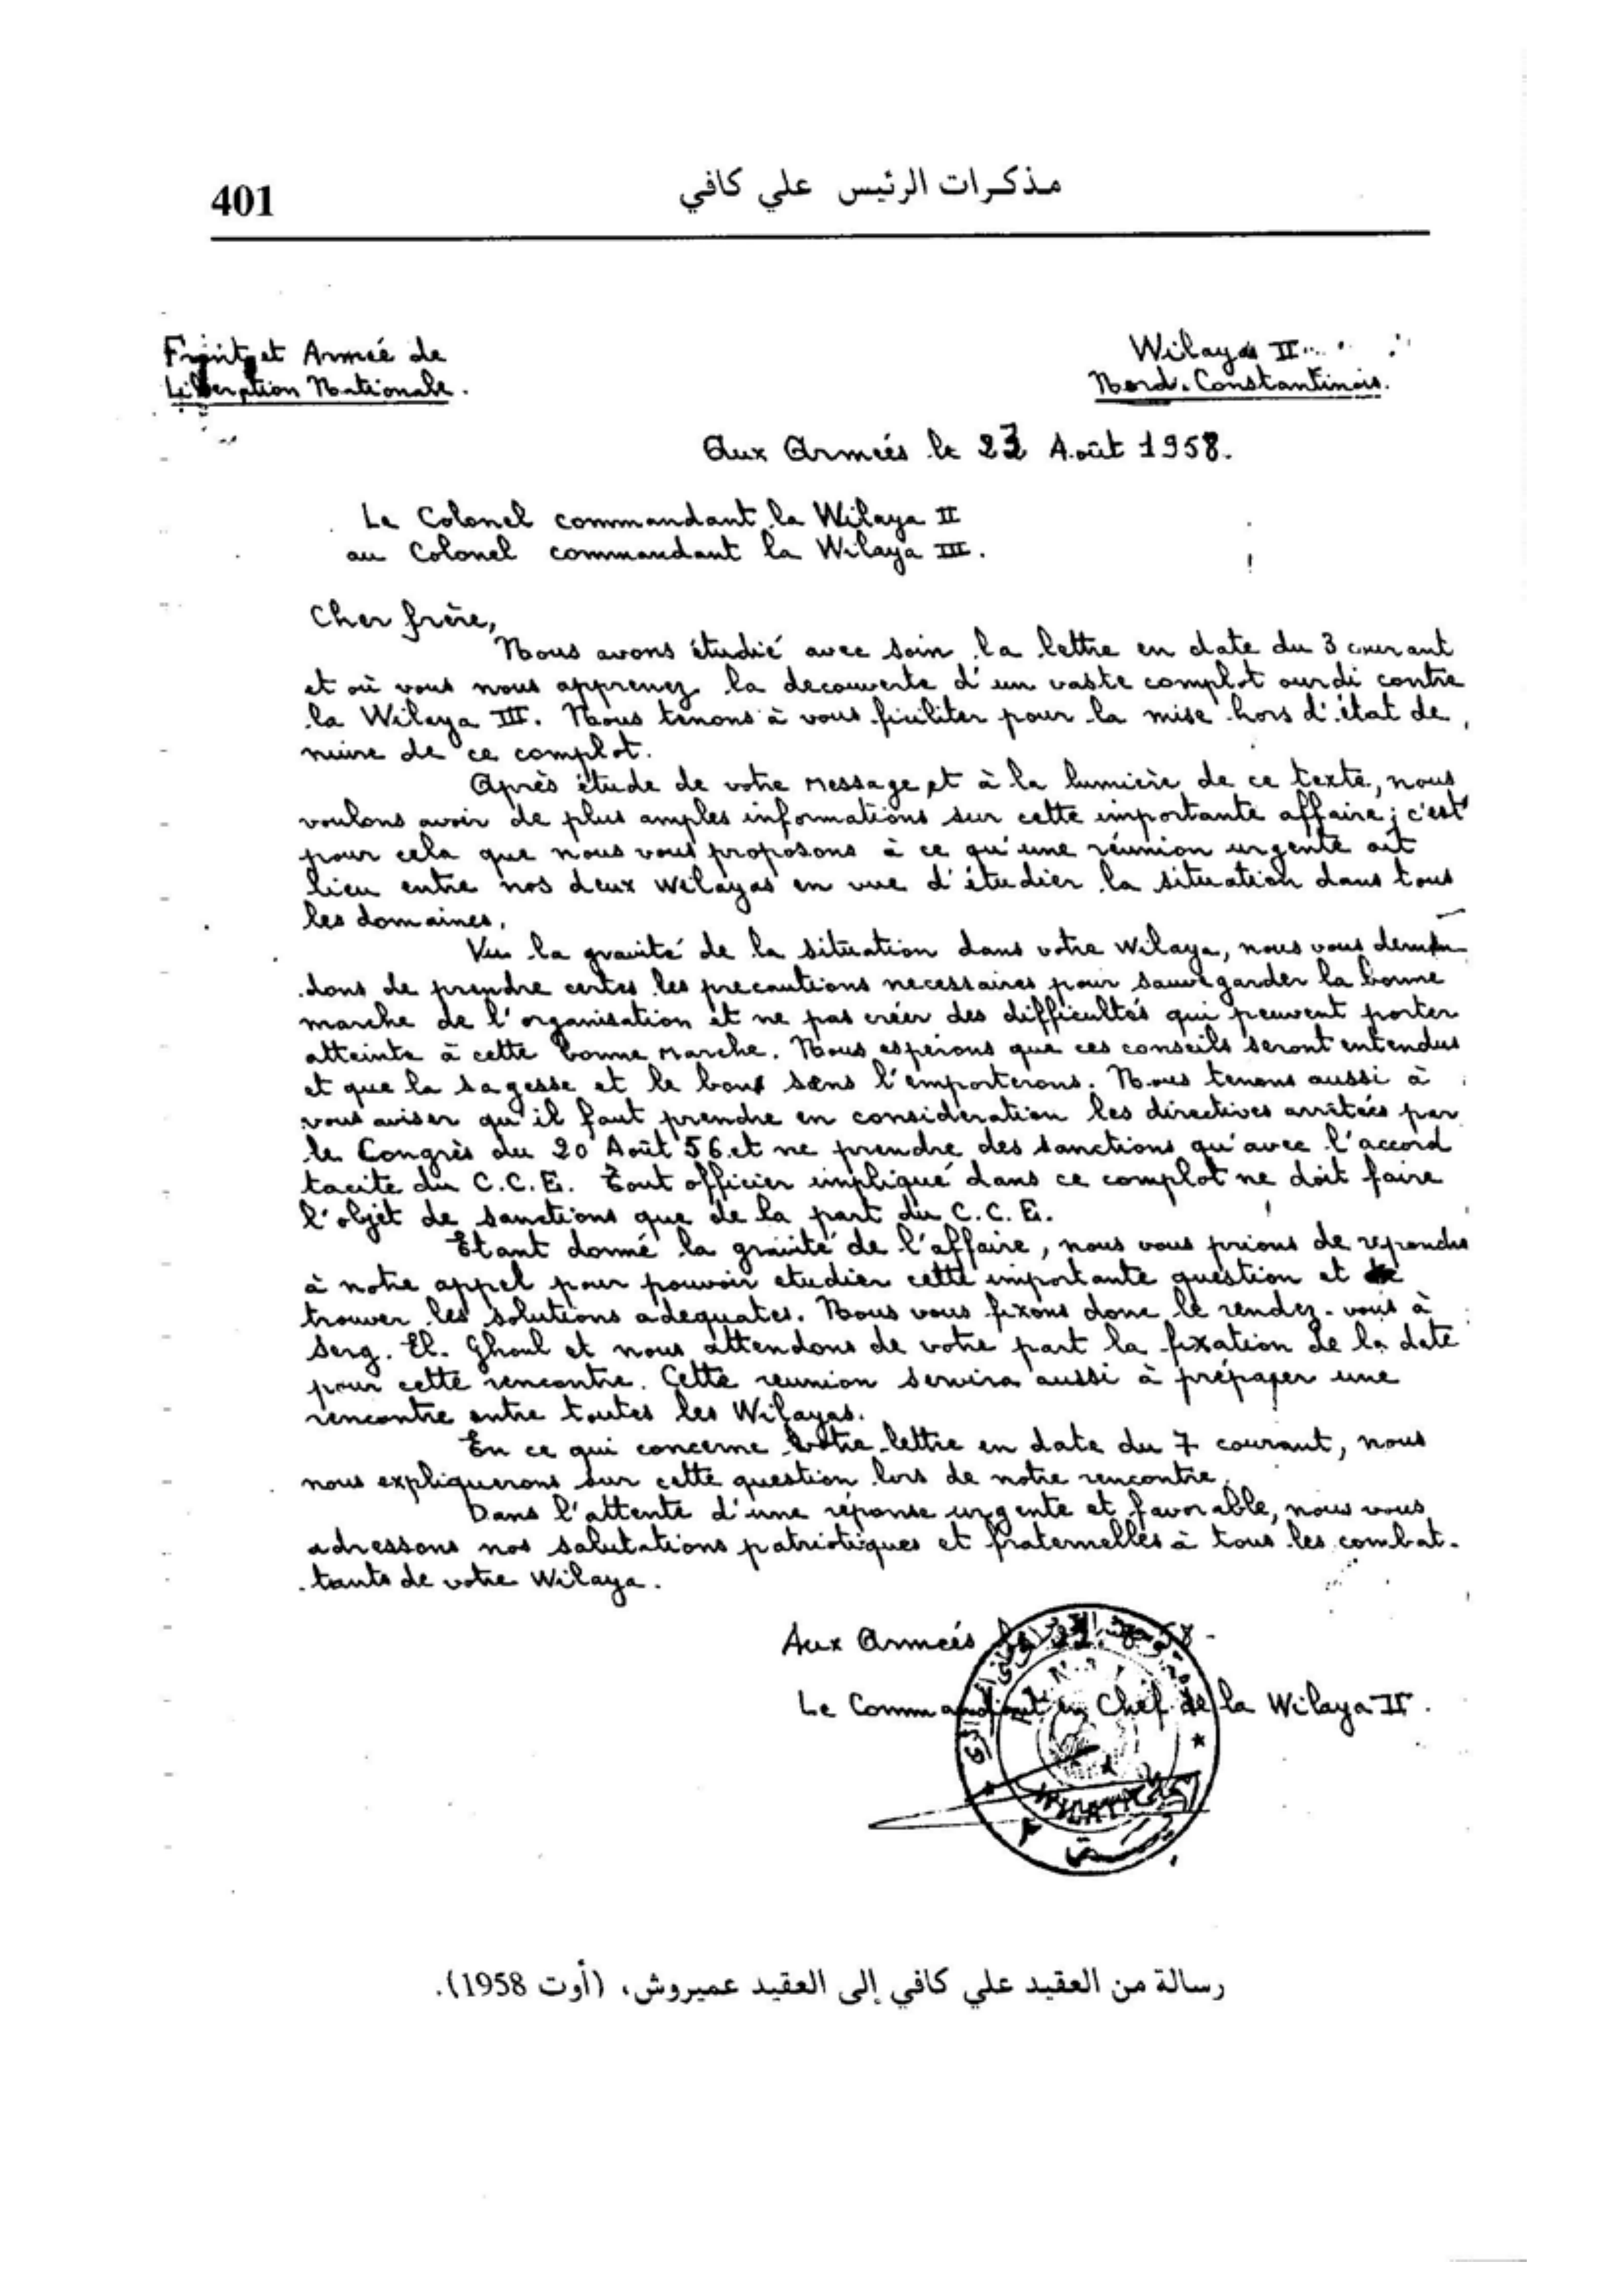 401
مذكرات الرئيس علي كافي
Front et Armée de
Libération Nationale.
Wilaya II
Nord-Constantinois.
Aux Armées le Août 1958.
Le Colonel commandant la Wilaya II
au Colonel commandant la Wilaya III.
Cher frère,
Nous avons étudié avec soin la lettre en date du 3 courant
et où vous nous apprenez la decouverte d'un vaste complot ourdi contre
la Wilaya III. Nous tenons à vous féciliter pour la mise hors d'état de
nuire de ce complot.
Après étude de votre message et à la lumière de ce texte, nous
voulons avoir de plus amples informations sur cette importante affaire; c'est
pour cela que nous vous proposons à ce qu'une réunion urgente ait
lieu entre nos deux wilayas en vue d'étudier la situation dans tous
les domaines.
Vu la gravité de la situation dans votre wilaya, nous vous deman-
dons de prendre certes les precautions necessaires pour sauvegarder la bonne
marche de l'organisation et ne pas créer des difficultés qui peuvent porter
atteinte à cette bonne marche. Nous esperons que ces conseils seront entendus
et que la sagesse et le bon sens l'emporterons. Nous tenons aussi à
vous aviser qu'il faut prendre en consideration les directives arrêtées par
le Congrès du 20 Août 56 et ne prendre des sanctions qu'avec l'accord
tacite du C.C.E. Tout officier impliqué dans ce complot ne doit faire
l'objet de sanctions que de la part du C.C.E.
Etant donné la gravité de l'affaire, nous vous prions de repondre
à notre appel pour pouvoir etudier cette importante question et
trouver les solutions adequates. Nous vous fixons donc le rendez-vous à
Serg. El. Ghoul et nous attendons de votre part la fixation de la date
pour cette rencontre. Cette reunion servira aussi à préparer une
rencontre entre toutes les Wilayas.
En ce qui concerne votre lettre en date du 7 courant, nous
nous expliquerons sur cette question lors de notre rencontre.
Dans l'attente d'une réponse urgente et favorable, nous vous
adressons nos salutations patriotiques et fraternelles à tous les combat-
tants de votre Wilaya.
Aux Armées
Le Commandant en Chef de la Wilaya II.
رسالة من العقيد علي كافي إلى العقيد عميروش، (أوت 1958).